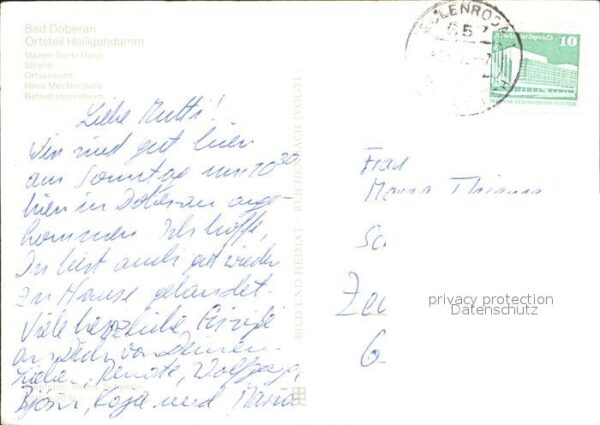 Bad Doberan
Ortsteil Heiligendamm
Maxim-Gorki-Haus
Strand
Ortsansicht
Haus Mecklenburg
Betriebsferienheim
Liebe Mutti!
Wir sind gut hier
am Sonntag um 10³⁰
hier in Doberan ange-
kommen. Ich hoffe,
Du bist auch gut wieder
zu Hause gelandet.
Viele herzliche Grüße
an Dich von Deinen
Renate, Wolfgang,
und
BILD UND HEIMAT · REICHENBACH (VOGTL)
ZEULENRODA
657
Deutsche Republik
10
Frau
privacy protection
Datenschutz
6